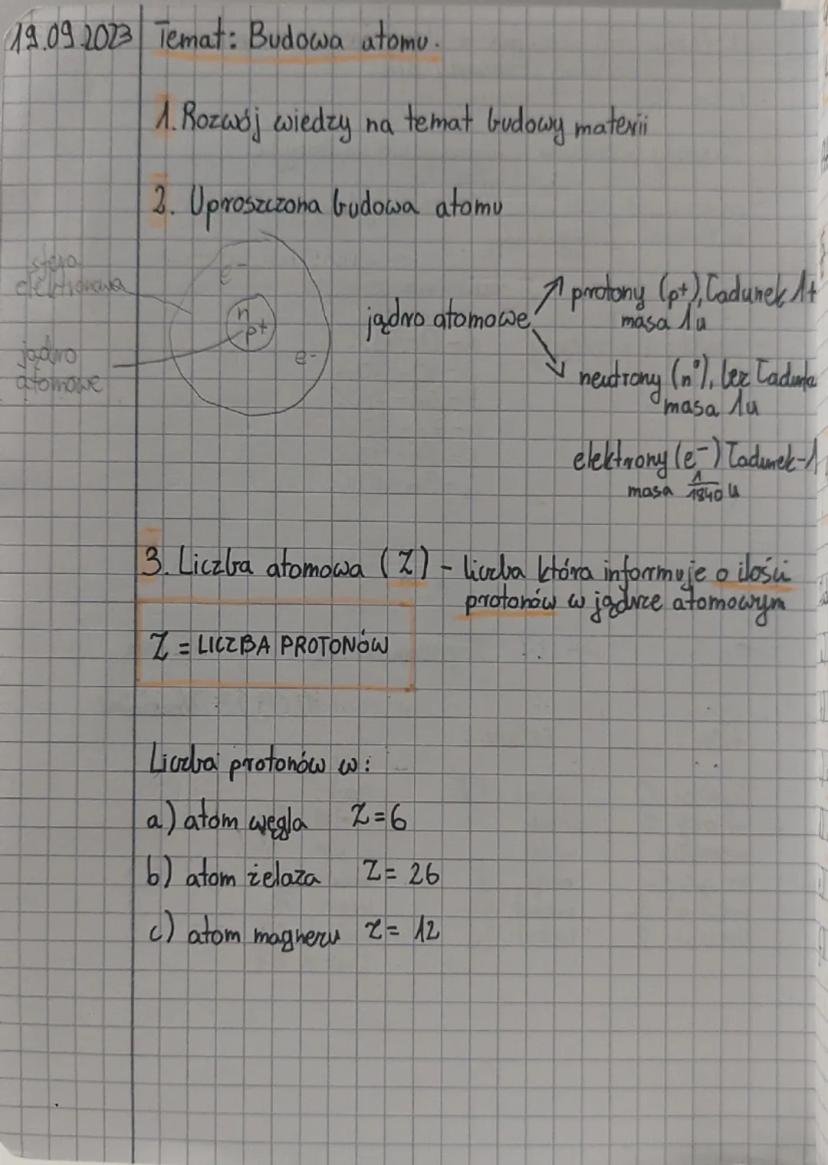 19.09.2023 Temat: Budowa atomu.
1. Rozwój wiedzy na temat budowy materii
2. Uproszczona budowa atomu
sfera
elektronowa
jądro
atomowe
e-
n
p+
e-
jądro atomowe
protony (p+), ładunek 1+
masa 1u
neutrony (n°), bez ładunku
masa 1u
elektrony (e-) ładunek -1
masa 1/1840 u
3. Liczba atomowa (Z) - liczba która informuje o ilości
protonów w jądrze atomowym
Z = LICZBA PROTONÓW
Liczba protonów w:
a) atom węgla Z=6
b) atom żelaza Z= 26
c) atom magnezu Z= 12